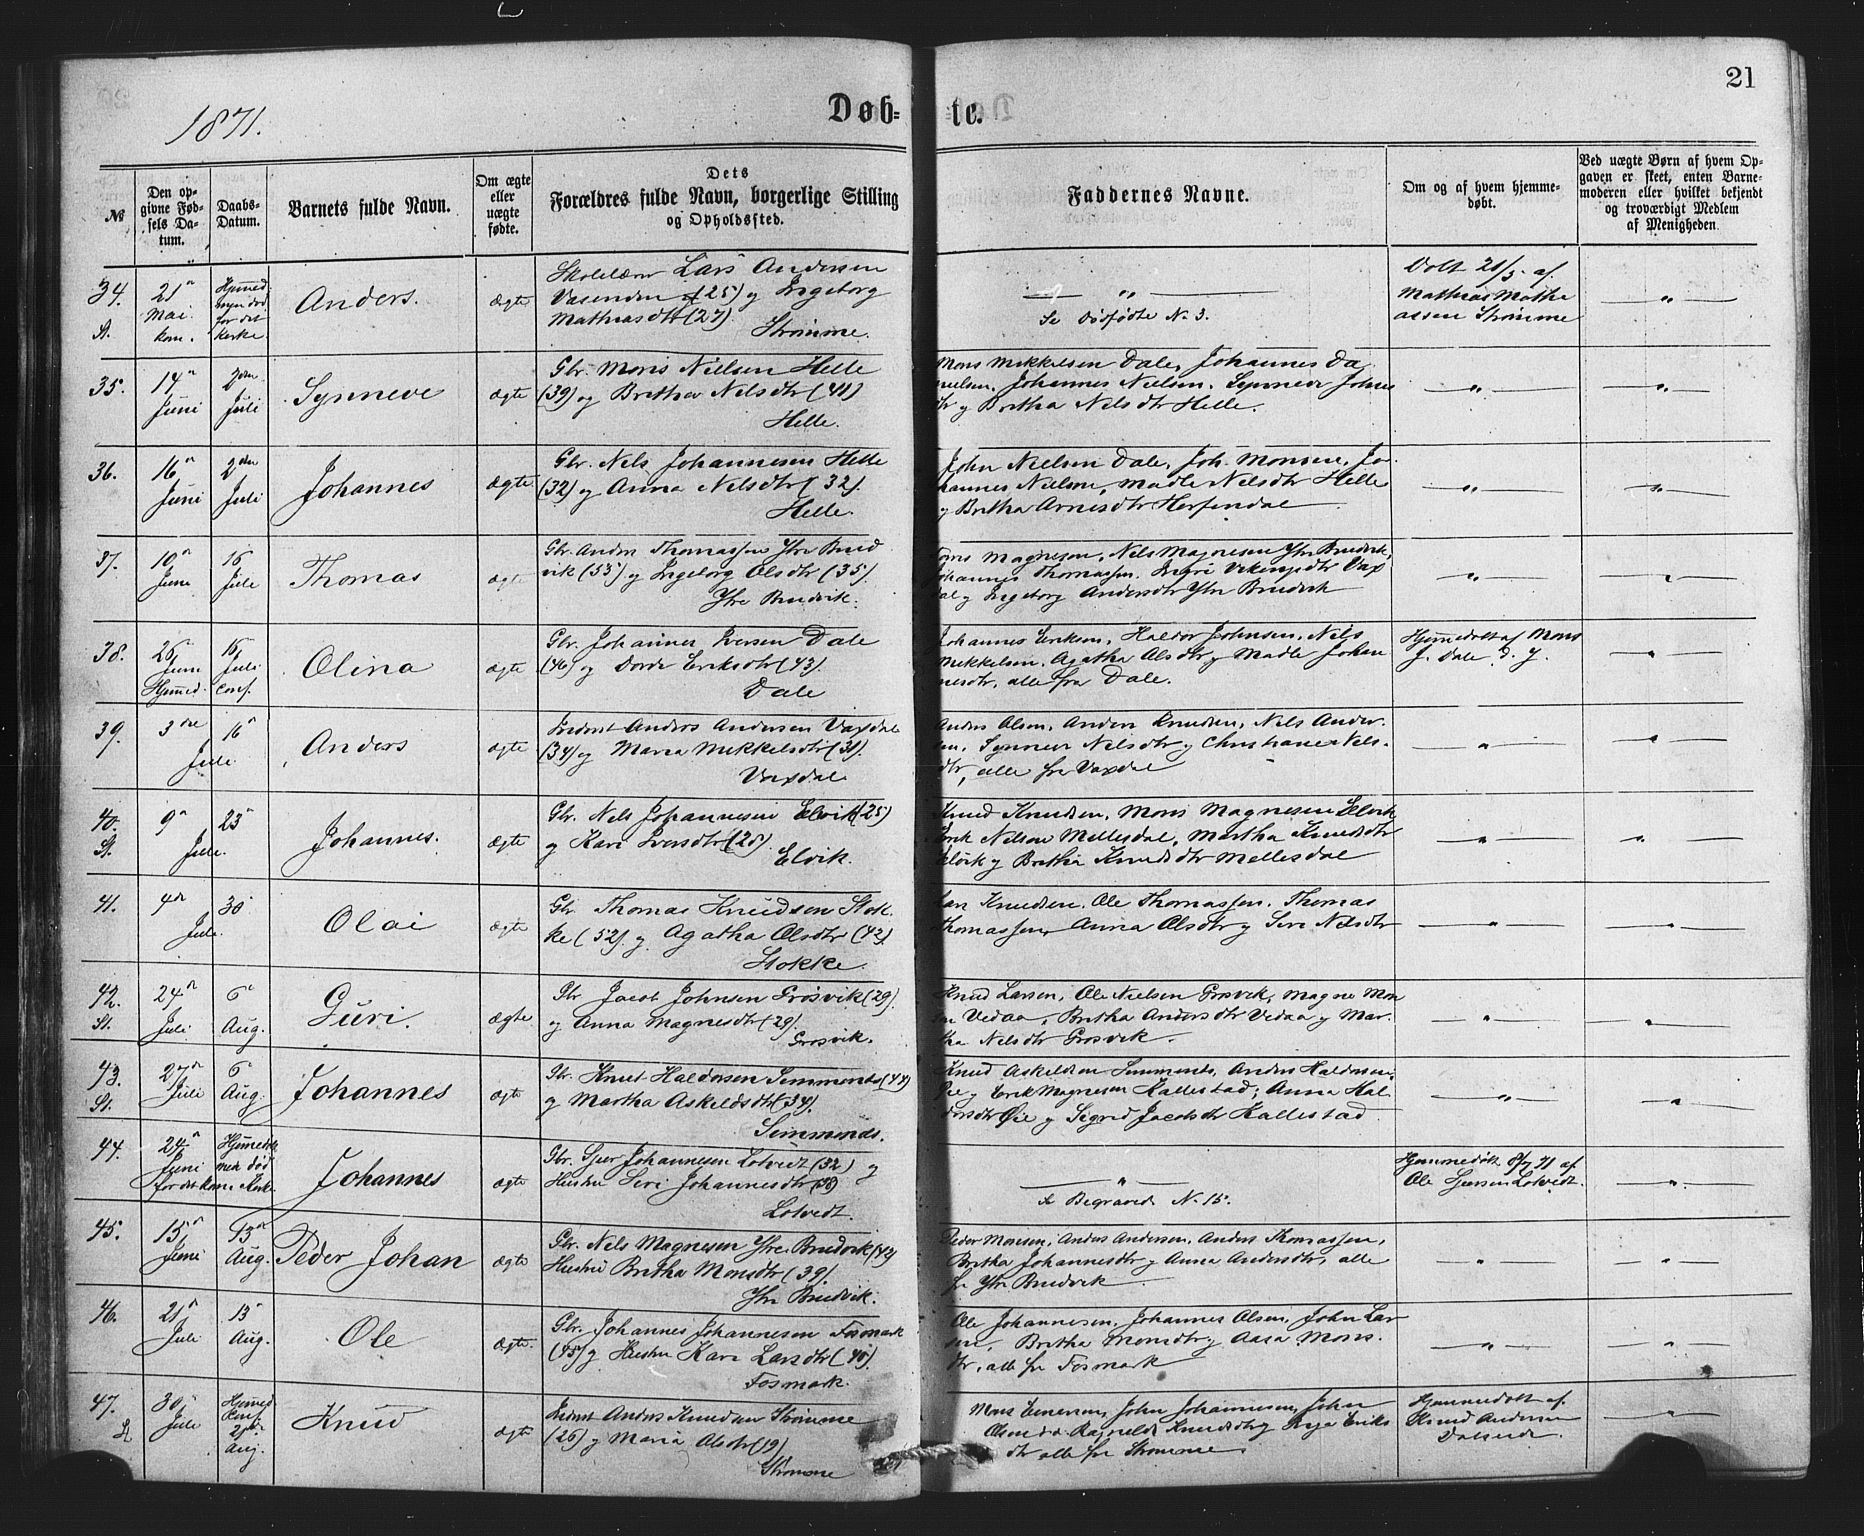 21
1871.
Døb- te.
№
Den opgivne Fødsels Datum.
Daabs-Datum.
Barnets fulde Navn.
Om ægte eller uægte fødte.
Dets Forældres fulde Navn, borgerlige Stilling og Opholdssted.
Faddernes Navne.
Om og af hvem hjemmedøbt.
Ved uægte Børn af hvem Opgaven er skeet, enten Barnemoderen eller hvilket bekjendt og troværdigt Medlem af Menigheden.
34. 21 Mai Anders. ægte
Skolelærer Lars Andersen
(25) og Ingeborg
Mathiasdtr (27)
Strømme.
Se Dødfødte N. 3.
Døbt 21/5 af
Mathias Mathiassen Strømme
35. 14 Juni 2den Juli Synneve ægte
Gbr. Mons Nielsen Helle
(39) og Britha Nilsdtr (41)
Helle.
Mons Mikkelsen Dale, Johannes Danielsen, Johannes Nielsen, Synneve
og Britha Nilsdtr Helle.
36. 16 Juni 2den Juli Johannes ægte
Gbr. Nils Johannesen Helle
(32) og Anna Nilsdtr (32).
Helle.
John Nielsen Dale, Joh. Monsen, Johannes Nielsen, Madle Nilsdtr Helle
og Britha Arnesdtr Herfindal
37. 10 Juni 16 Juli Thomas ægte
Gbr. Anders Thomassen Ytre Bruvik (53) og Ingeborg Olsdtr (35).
Ytre Bruvik.
Magnesen, Nils Magnesen Ytre Bruvik,
Johannes Thomassen,
og Ingeborg Andersdtr Ytre Bruvik
38. 26 Juni Hjemmed. 16 Juli conf. Olina ægte
Gbr. Johannes Iversen Dale
(46) og Dorde Eriksdtr (43).
Dale
Johannes Eriksen, Haldor Johnsen, Nils
Mikkelsen, Agatha Olsdtr og Madle Johannesdtr, alle fra Dale.
Hjemmedøbt af Mons
J. Dale d. y.
39. 3die Juli 16 Anders ægte
Anders Andersen Vaxdal
(34) og Maria Mikkelsdtr (31).
Vaxdal
Anders Olsen, Anders Knudsen, Nils Andersen, Synneve Nilsdtr og Christiane Nilsdtr, alle fra Vaxdal
40. St. 9 Juli. 23 Johannes. ægte
Gbr. Nils Johannesen Elvik (25)
og Kari Iversdtr (25)
Elvik.
Knud Knudsen, Mons Magnesen Elvik
Erik Nilsen Mellesdal, Martha Knudsdtr
Elvik og Britha Knudsdtr Mellesdal
41. 4de Juli. 30 Olai ægte
Gbr. Thomas Knudsen Stokke (52). og Agatha Olsdtr (42)
Stokke.
Lars Knudsen, Ole Thomassen, Thomas
Thomassen, Anna Olsdtr og Siri Nilsdtr
42. St. 24 Juli 6 Aug. Guri. ægte
Gbr Jacob Johnsen Grøsvik (29).
og Anna Magnesdtr (29).
Grøsvik.
Knud Larsen, Ole Nielsen Grøsvik, Magne Monsen Vedaa, Britha Andersdtr Vedaa og Martha Nilsdtr Grøsvik.
43. St. 27de Juli 6 Aug. Johannes ægte
Gbr. Knut Haldorsen Simmenes (44)
og Martha Askeldsdtr (34).
Simmenes.
Knud Askeldsen Simmenes, Anders Haldorsen
Øie og Erik Magnesen Hallestad; Anna Haldorsdtr Øie og Sigrid Jacobsdtr Hallestad.
44. 24 Juni Johannes ægte
Gbr. Sjur Johannesen Lotvedt (32) og
Hustru Siri Johannesdtr
Lotvedt.
se Begravede N. 15.
Hjemmedøbt 8/7 71 af
Ole Sjursen Lotvedt.
45. 15 Juni 13 Aug. Peder Johan ægte
Gbr. Nils Magnesen Ytre Bruvik (42)
Hustru Britha Monsdtr (39).
Ytre Bruvik.
Peder Monsen, Anders Andersen, Anders Thomassen,
Britha Johannesdtr og Anna Andersdtr, alle
fr Ytre Bruvik
46. 21 Juli 13 Aug. Ole ægte.
Gbr. Johannes Johannesen Fosmark
(45) og Hustru Kari Larsdtr (40).
Fosmark.
Ole Johannesen, Johannes Olsen, John Larsen, Britha Monsdtr og Aasa Monsdtr, alle fr Fosmark
47. 30 Juli Knud ægte
Anders Knudsen Strømme
(26) og Maria Olsdtr (19)
Strømme
Mons Johannesen, John
Ragnilde Knudsdtr og
alle fr Strømme
Hjemmedøbt af
Knud Andersen